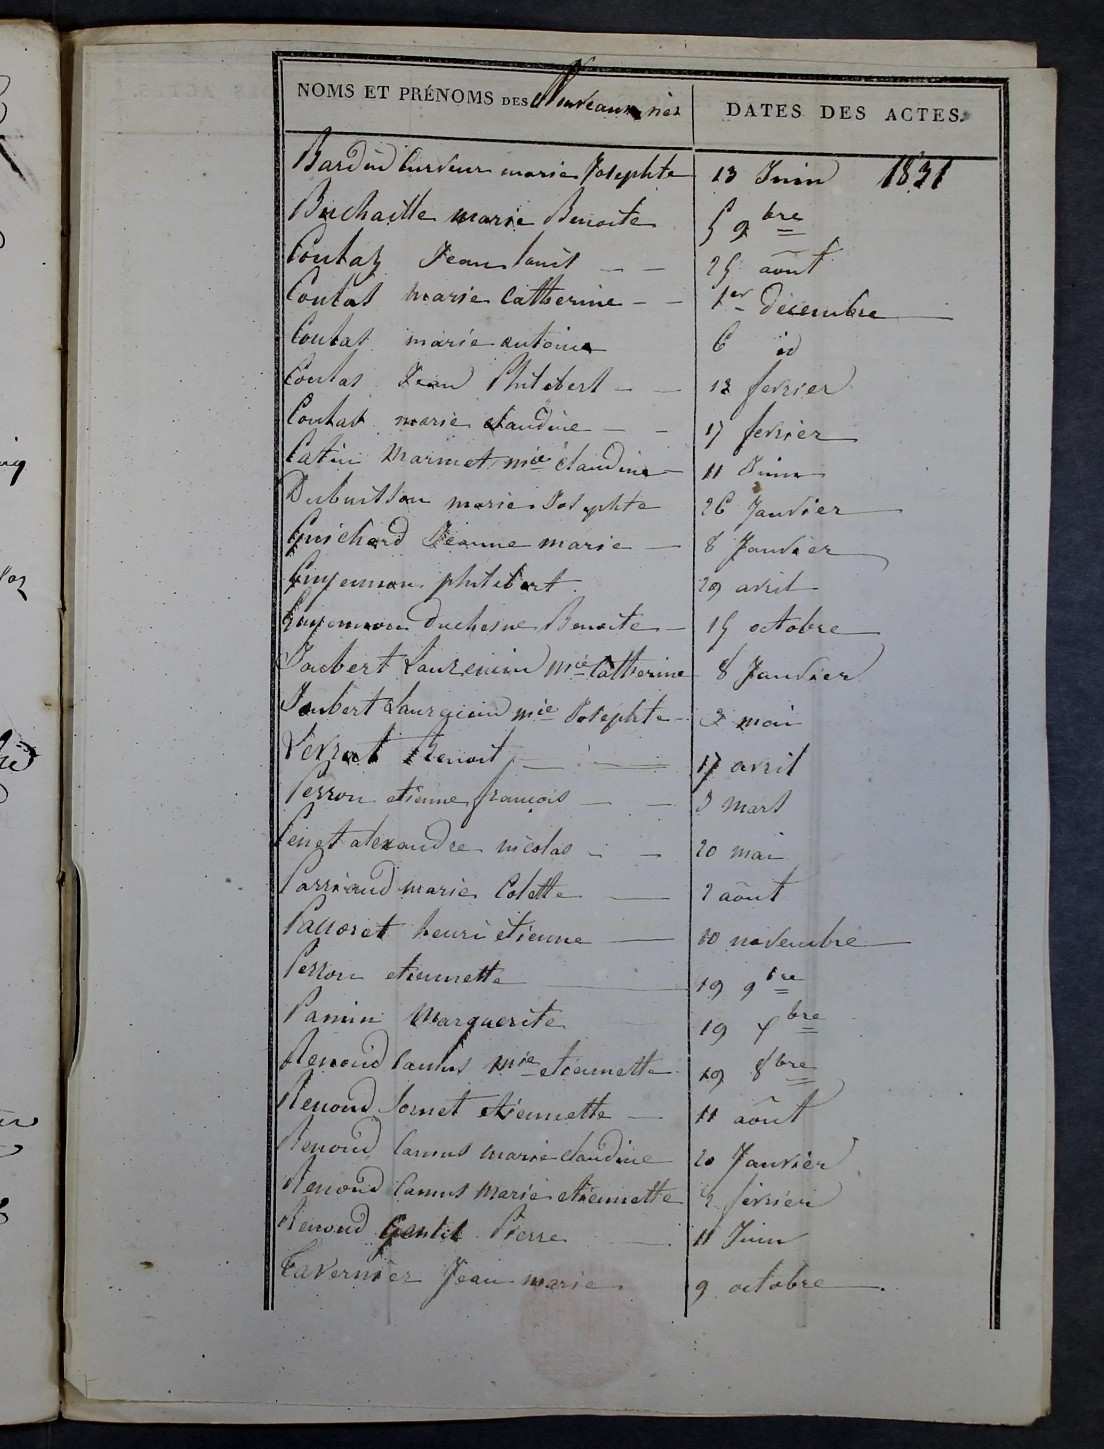 NOMS ET PRÉNOMS DES Nouveaux nés
DATES DES ACTES.
Bardin Curveur marie Josephte 13 Juin 1831
Buchaille marie Benoite 5 9bre
Coutaz Jean louis - - 25 août
Coutas marie Catherine - - 1er décembre
Coutat marie antoine 6 id
Coutas Jean Philibert - - 12 fevrier
Coutat marie claudine - - 17 fevrier
Catin Marmet mie claudine 11 Juin
Dubuisson marie Josephte 26 Janvier
Guichard Jeanne marie - 8 Janvier
Guyennon philibert 29 avril
Guyennon duchesne Benoite - 15 octobre
Joubert Laurencin mie Catherine 8 Janvier
Joubert Laurencin mie Josephte - 3 mai
Verrat Benoit 17 avril
Perron etienne françois - - 3 mars
Penet alexandre nicolas - - 20 mai
Parriaud marie Colette 2 août
Passeret henri étienne 10 novembre
Perron etiennette 19 9bre
Pamin Marguerite 19 xbre
Renoud camus mie etiennette 19 8bre
Renoud Sornet etiennette 11 août
Renoud Camus marie claudine 20 Janvier
Renoud Camus Marie etiennette 2 février
Renoud Gentil Pierre 11 Juin
Tavernier Jean marie 9 octobre